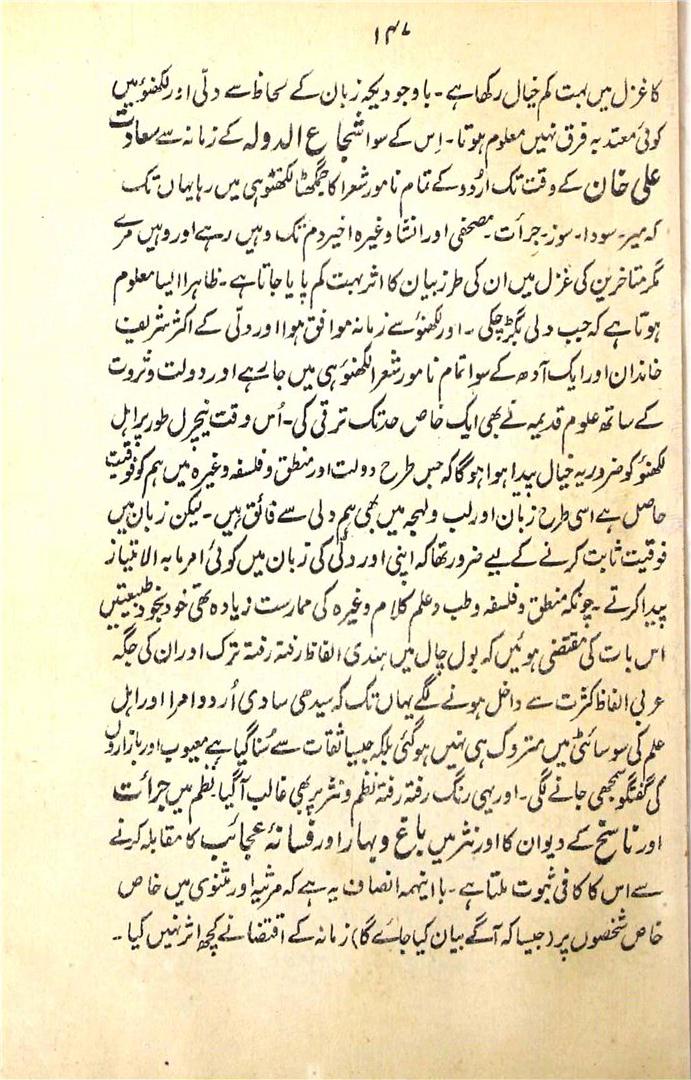 ۱۴۷
کا غزل میں بہت کم خیال رکھا ہے ۔ باوجودیکہ زبان کے لحاظ سے دلّی اور لکھنؤ میں
کوئی معتد بہ فرق نہیں معلوم ہوتا ۔ اِس کے سوا شجاع الدولہ کے زمانہ سے سعادت
علی خان کے وقت تک اُردو کے تمام نامور شعرا کا جمگھٹا لکھنؤ ہی میں رہا یہاں تک
کہ میر ۔ سودا ۔ سوز ۔ جرأت ۔ مصحفی اور انشا وغیرہ اخیر دم تک وہیں رہے اور وہیں مرے
مگر متاخرین کی غزل میں ان کی طرز بیان کا اثر بہت کم پایا جاتا ہے ۔ ظاہرا ایسا معلوم
ہوتا ہے کہ جب دلی بگڑ چکی ۔ اور لکھنؤ سے زمانہ موافق ہوا اور دلّی کے اکثر شریف
خاندان اور ایک آدھ کے سوا تمام نامور شعرا لکھنؤ ہی میں جا رہے اور دولت و ثروت
کے ساتھ علوم قدیمہ نے بھی ایک خاص حد تک ترقی کی ۔ اُس وقت نیچرل طور پر اہل
لکھنؤ کو ضرور یہ خیال پیدا ہوا ہوگا کہ جس طرح دولت اور منطق و فلسفہ وغیرہ میں ہم کو فوقیت
حاصل ہے اسی طرح زبان اور لب و لہجہ میں بھی ہم دلی سے فائق ہیں ۔ لیکن زبان میں
فوقیت ثابت کرنے کے لیے ضرور تھا کہ اپنی اور دلّی کی زبان میں کوئی امر مابہ الامتیاز
پیدا کرتے ۔ چونکہ منطق و فلسفہ و طب و علم کلام وغیرہ کی ممارست زیادہ تھی خود بخود طبیعتیں
اس بات کی مقتضی ہوئیں کہ بول چال میں ہندی الفاظ رفتہ رفتہ ترک اور ان کی جگہ
عربی الفاظ کثرت سے داخل ہونے لگے یہاں تک کہ سیدھی سادی اُردو امرا اور اہل
علم کی سوسائٹی میں متروک ہی نہیں ہوگئی بلکہ جیسا ثقات سے سُنا گیا ہے معیوب اور بازاریوں
کی گفتگو سمجھی جانے لگی ۔ اور یہی رنگ رفتہ رفتہ نظم و نثر پر بھی غالب آگیا ۔ نظم میں جرأت
اور ناسخ کے دیوان کا اور نثر میں باغ و بہار اور فسانۂ عجائب کا مقابلہ کرنے
سے اس کا کافی ثبوت ملتا ہے ۔ با اینہمہ انصاف یہ ہے کہ مرثیہ اور مثنوی میں خاص
خاص شخصوں پر (جیسا کہ آگے بیان کیا جائے گا) زمانہ کے اقتضا نے کچھ اثر نہیں کیا ۔